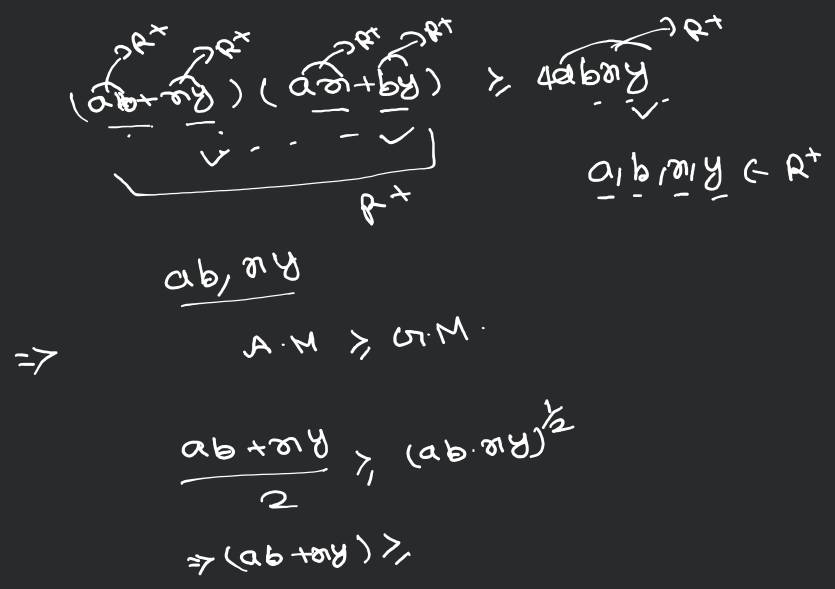 →R⁺ →R⁺ →R⁺ →R⁺ →R⁺
(ab+xy)(ax+by) ≥ 4abxy
R⁺
a,b,x,y ∈ R⁺
ab, xy
⇒ A.M ≥ G.M.
(ab+xy)/2 ≥ (ab.xy)^(1/2)
⇒ (ab+xy) ≥